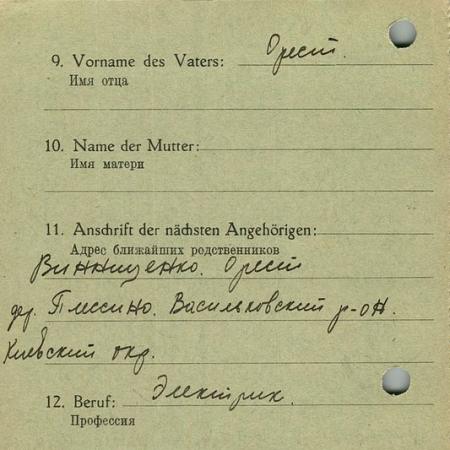 9. Vorname des Vaters: Орест.
Имя отца
10. Name der Mutter:
Имя матери
11. Anschrift der nächsten Angehörigen:
Адрес ближайших родственников
Винниценко. Орест
дер. Плессино. Васильковский р-он.
Киевский окр.
12. Beruf: Электрик.
Профессия